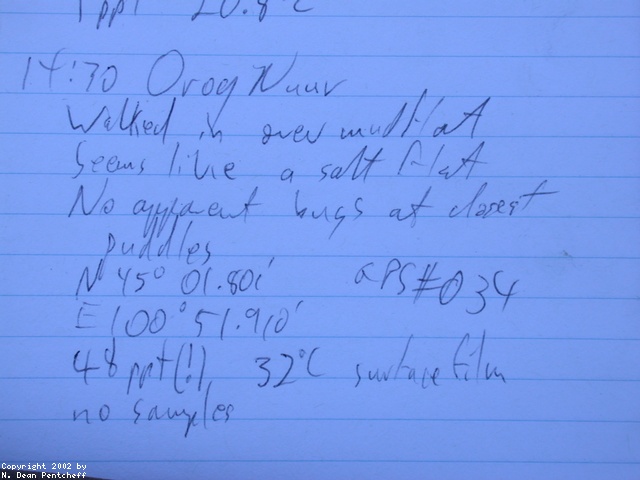 1 ppt 20.8°C
14:30 Orog Nuur
Walked in over mudflat
Seems like a salt flat
No apparent bugs at closest
puddles
N 45° 01.801' GPS#034
E 100° 51.910'
48 ppt(!) 32°C surface film
no samples
Copyright 2002 by
N. Dean Pentcheff